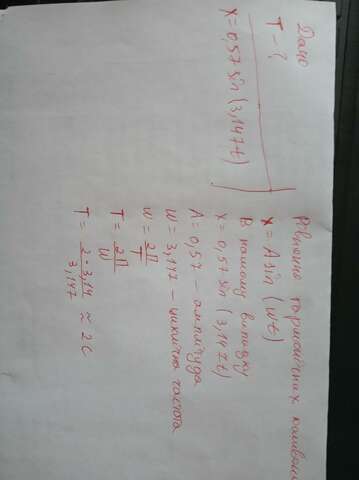 Дано
T - ?
x = 0,57 sin (3,147t)
Рівняння гармонічних коливань
x = A sin (ωt)
В нашому випадку
x = 0,57 sin (3,147t)
A = 0,57 - амплітуда
ω = 3,147 - циклічна частота
ω = 2П/T
T = 2П/ω
T = 2·3,14/3,147 ≈ 2c